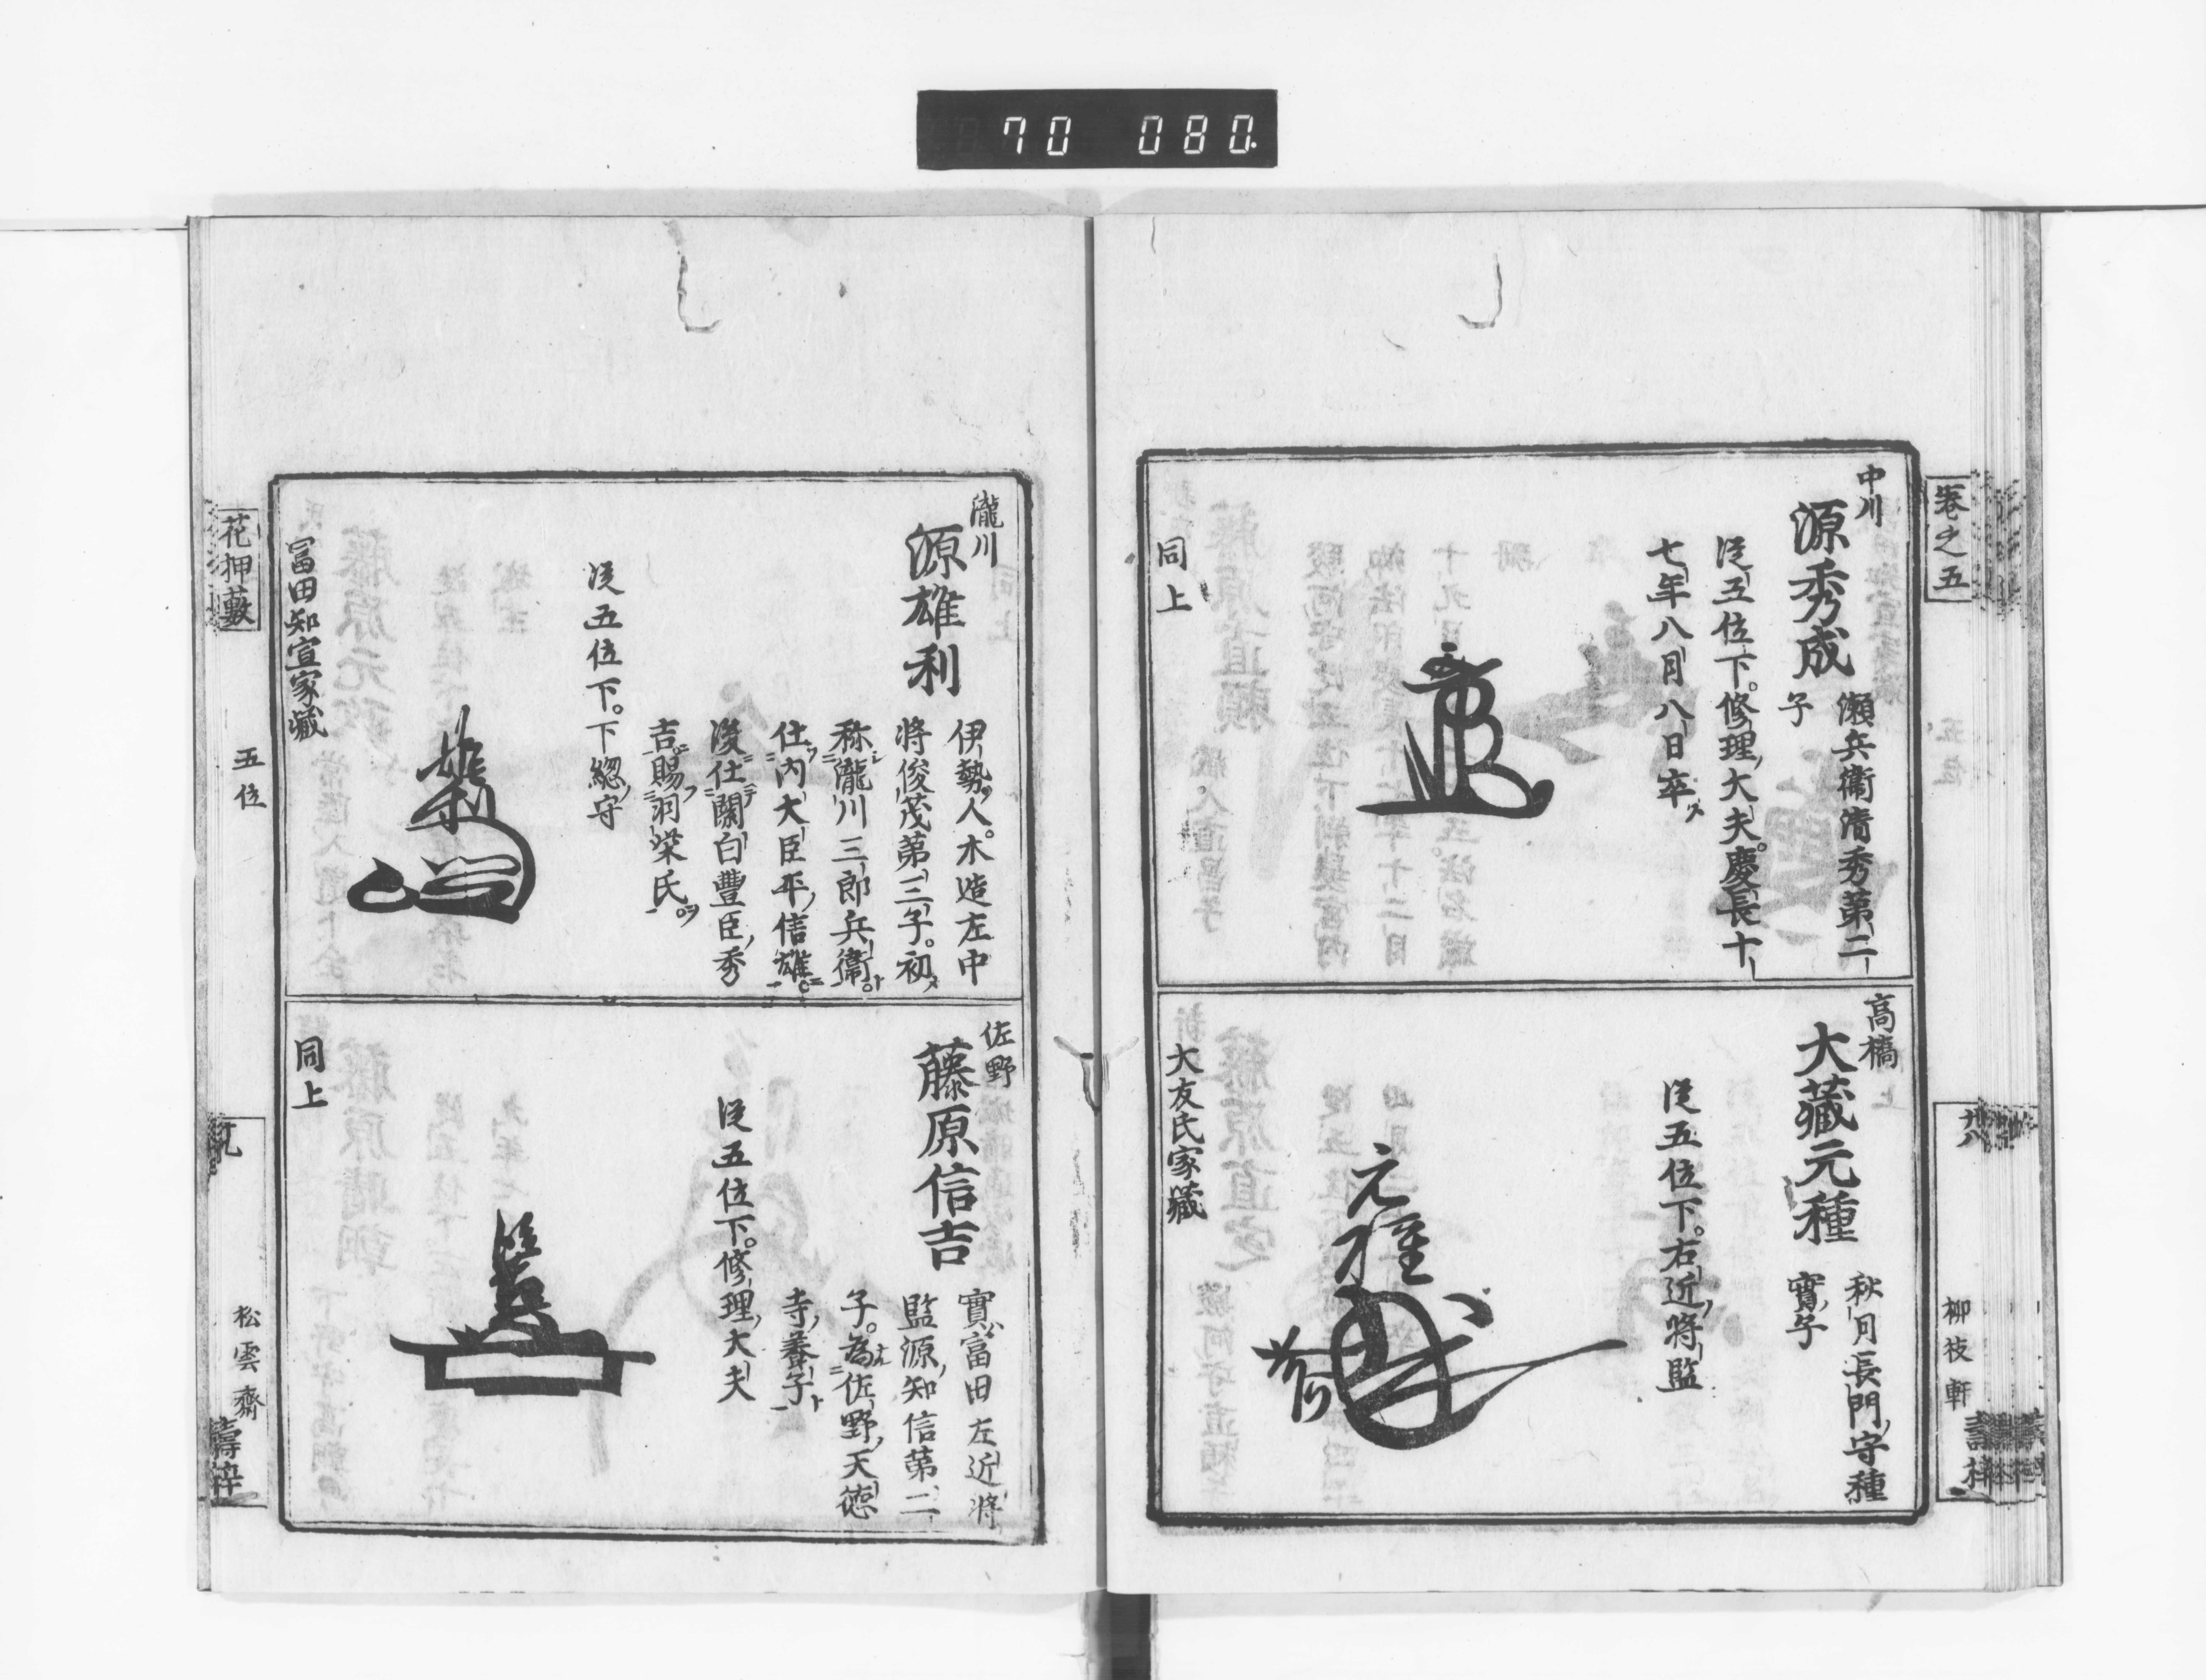 70 080
巻之五
中川
源秀成
瀬兵衞清秀第二
子
從五位下。修理大夫。慶長十
七年八月八日卒
同上
高橋
大藏元種
秋月長門守種
實子
從五位下。右近將監
元種
大友氏家藏
廿八
柳枝軒
瀧川
源雄利
伊勢人。木造左中
將俊茂第三子。初
称瀧川三郎兵衞。
仕内大臣平信雄。
後仕關白豐臣秀
吉。賜羽柴氏。
從五位下。下總守
雄利
冨田知宣家藏
佐野
藤原信吉
實富田左近將
監源知信第二
子。為佐野天德
寺養子
從五位下。修理大夫
同上
花押藪
五位
松雲齋